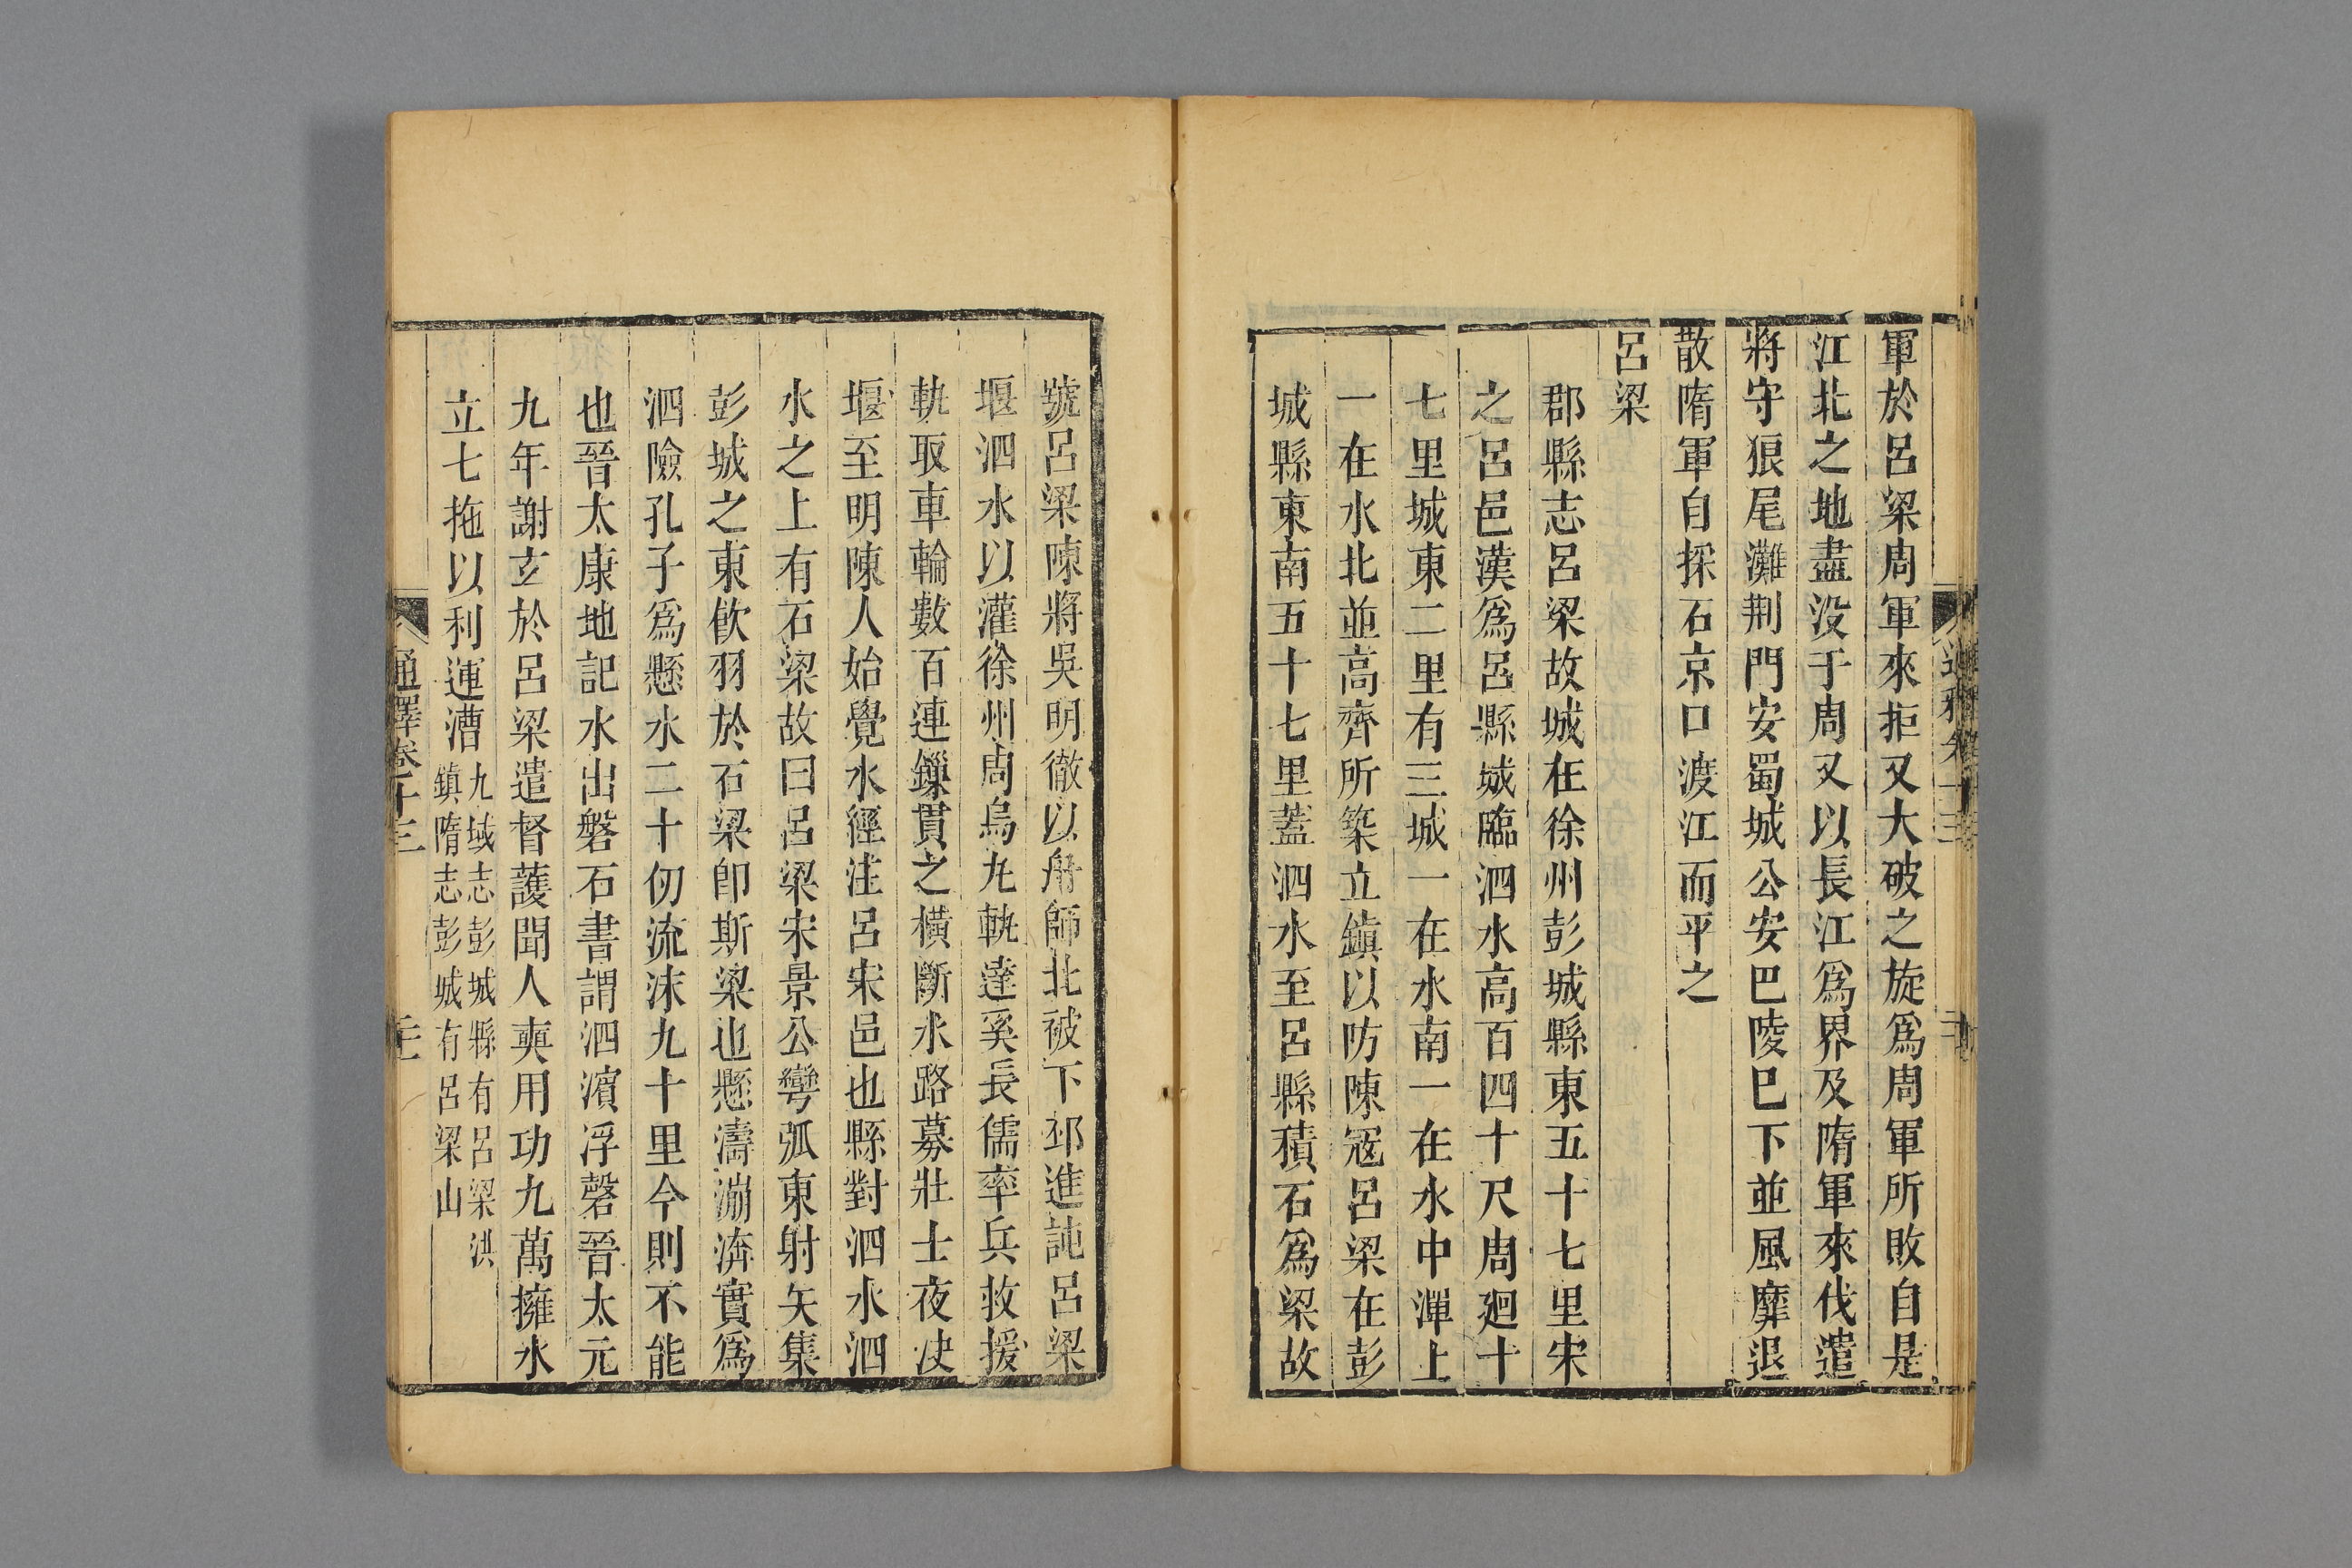 軍於呂梁周軍來拒又大破之旋爲周軍所敗自是
江北之地盡没于周又以長江爲界及隋軍來伐遣
將守狼尾灘荆門安蜀城公安巴陵巳下並風靡退
散隋軍自採石京口渡江而平之
呂梁
郡縣志呂梁故城在徐州彭城縣東五十七里宋
之呂邑漢爲呂縣城臨泗水高百四十尺周廻十
七里城東二里有三城一在水南一在水中潬上
一在水北並高齊所築立鎮以防陳冦呂梁在彭
城縣東南五十七里蓋泗水至呂縣積石爲梁故
號呂梁陳將吳明徹以舟師北被下邳進訰呂梁
堰泗水以灌徐州周烏九軌達奚長儒率兵救援
軌取車輪數百連鏁貫之横斷水路募壯士夜决
堰至明陳人始覺水經注呂宋邑也縣對泗水泗
水之上有石梁故曰呂梁宋景公彎弧東射矢集
彭城之東飲羽於石梁卽斯梁也懸濤漰渀實爲
泗險孔子爲懸水二十仞流沫九十里今則不能
也晉太康地記水出磐石書謂泗濱浮磬晉太元
九年謝玄於呂梁遣督護聞人奭用功九萬擁水
立七拖以利運漕九域志彭城縣有呂梁洪
鎮隋志彭城有呂梁山
通釋卷十三